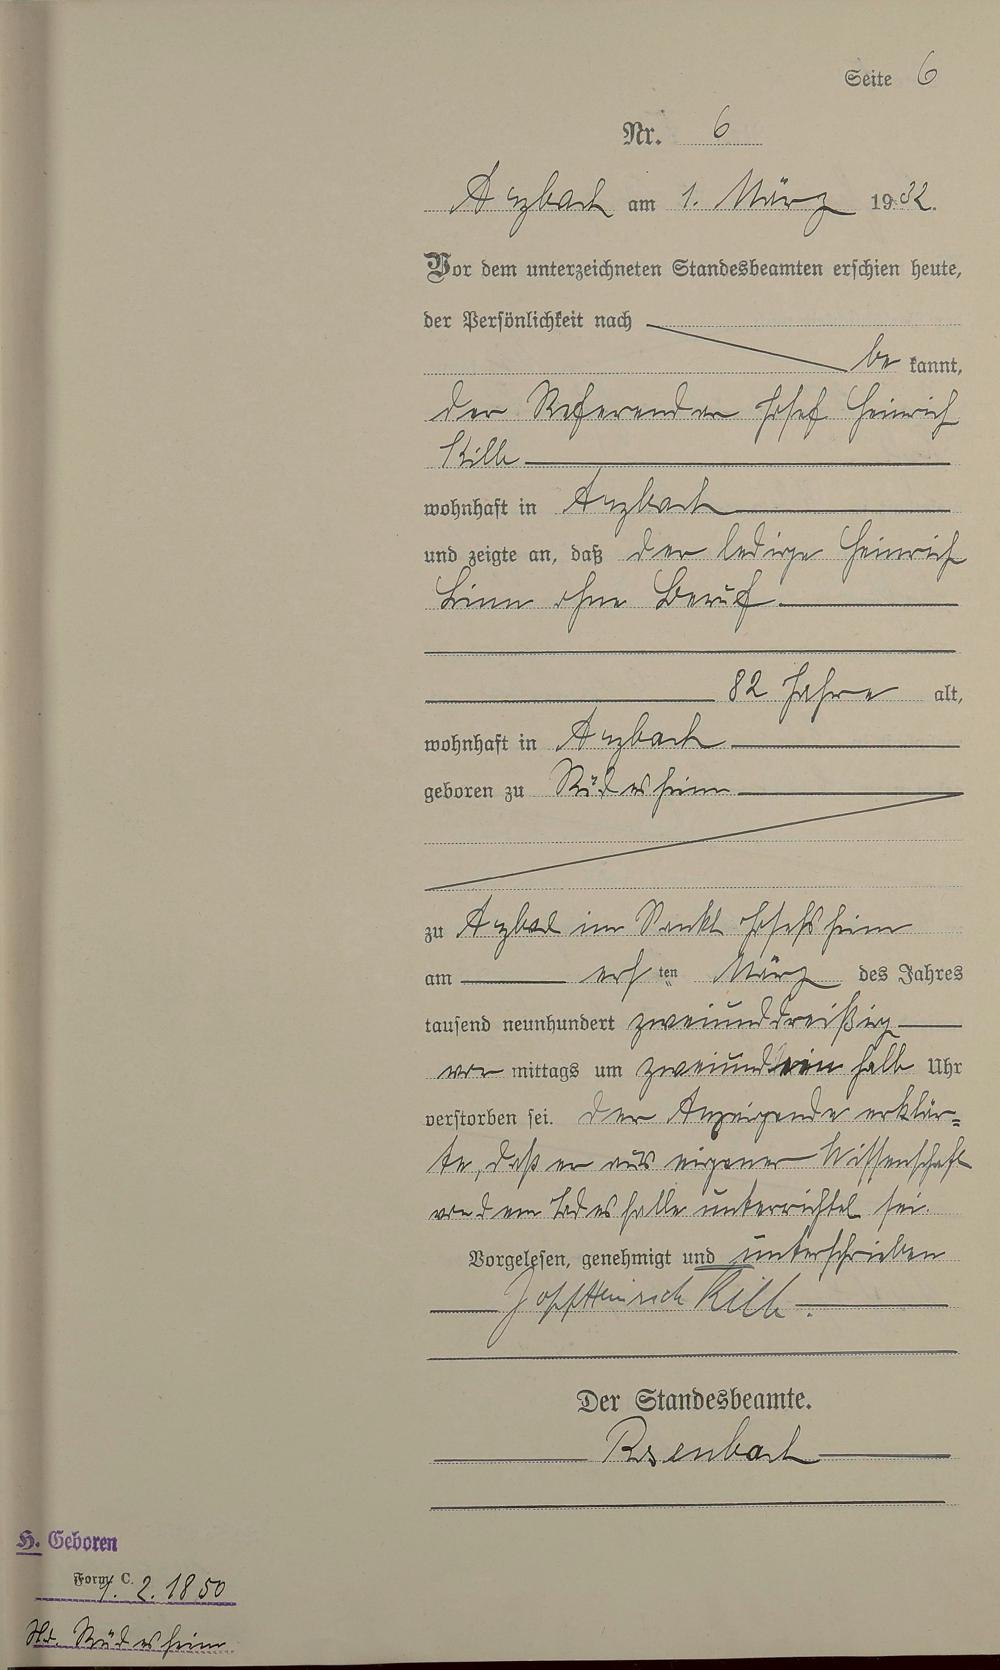 Seite 6
Nr. 6
Arzbach am 1. März 1932.
Vor dem unterzeichneten Standesbeamten erschien heute,
der Persönlichkeit nach
be kannt,
der Referendar Josef Heinrich
Kilb
wohnhaft in Arzbach
und zeigte an, daß der ledige Heinrich
Linn ohne Beruf
82 Jahre alt,
wohnhaft in Arzbach
geboren zu Rüdesheim
zu Arzbach im Sankt Josefsheim
am ersten März des Jahres
tausend neunhundert zweiunddreißig
vor mittags um zweiundein halb Uhr
verstorben sei. Der Anzeigende erklär=
te, daß er aus eigener Wissenschaft
von dem Todesfalle unterrichtet sei.
Vorgelesen, genehmigt und unterschrieben
Josef Heinrich Kilb.
Der Standesbeamte.
Rosenbach
H. Geboren
Form. C.
2. 1850
Rüdesheim